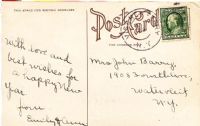 THIS SPACE FOR WRITING MESSAGES
Post Card
with love and
best wishes for
a happy New
Year
from
Emily & Ann
Mrs John Barry,
1903
Watervliet
N.Y.